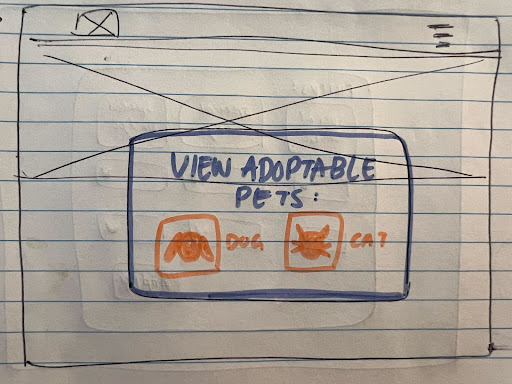 VIEW ADOPTABLE
PETS:
DOG CAT